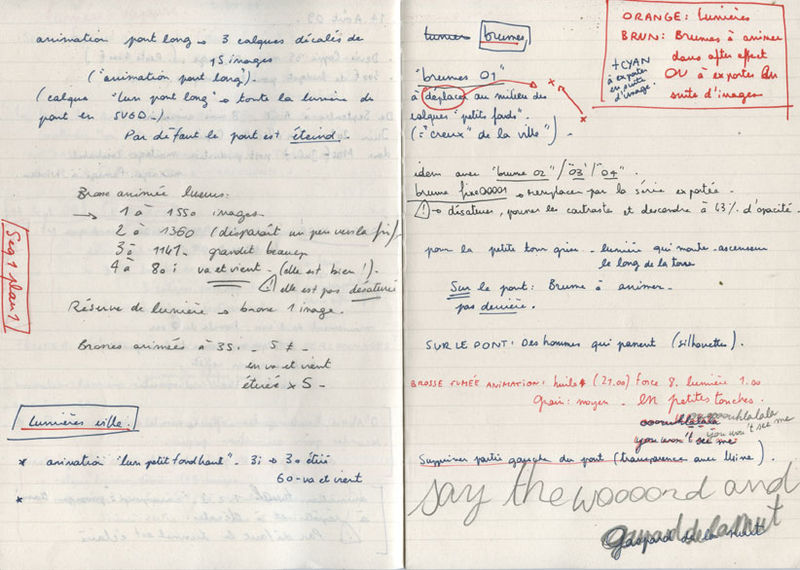 animation pont long → 3 calques décalés de
15 images
("animation pont long").
(calque "lum pont long" → toute la lumière du
pont en SUGO.)
Par défaut le pont est éteind.
Brosse animée lueurs:
→ 1 à 1550 images.
2 à 1360 (disparaît un peu vers la fin)
3 à 1161 - grandit beaucoup
4 à 80 i va et vient - (elle est bien !).
(!) elle est pas désaturée
Réserve de lumière → brosse 1 image.
Seq 1 plan 1
Brosses animées à 35i - 5 ≠ -
en va et vient
étirées x 5 -
Lumières ville.
* animation "lum petit fond haut" - 3i → 30 étiré
60 - va et vient
*
lumière brumes
ORANGE: lumières
BRUN: Brumes à animer
dans after effect
OU à exporter En
suite d'images
+ CYAN
à exporter
en suite
d'image
"brumes 01"
à déplacer au milieu des
calques "petits fonds".
(= "creux" de la ville").
idem avec "brume 02" / "03" / "04".
brume fixe 00001 → remplacer par la série exportée.
(!) → désaturer, pousser les contrastes et descendre à 43% d'opacité.
pour la petite tour grise - lumière qui monte - ascenseur
le long de la tour
Sur le pont: Brume à animer -
pas derrière.
SUR LE PONT: Des hommes qui passent (silhouettes).
BROSSE FUMÉE ANIMATION: huile (21.00) Force 8. lumière 1.00
Grain: moyen - en petites touches.
ooouuhlalala
you won't see me
you won't see me
Supprimer partie gauche du pont (transparence avec Usine).
say the woooord and
Gaspard de la Nuit